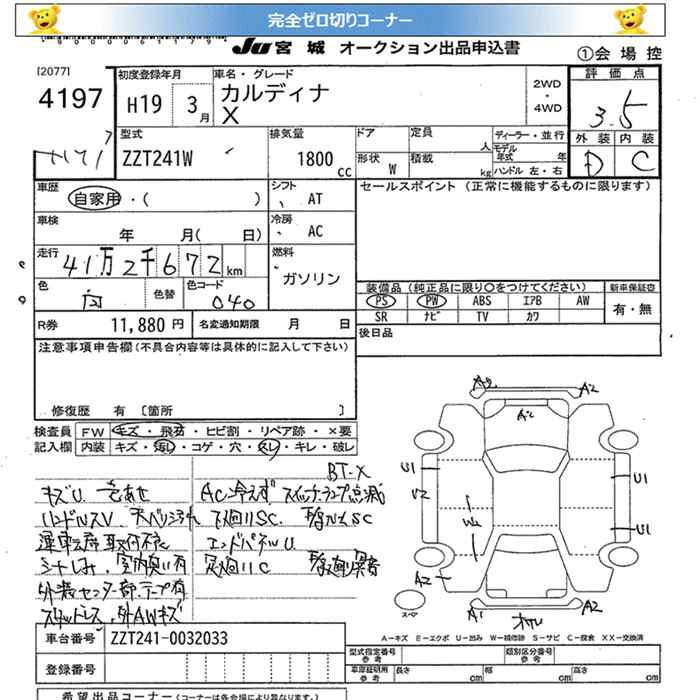 完全ゼロ切りコーナー
JU 宮城 オークション出品申込書
①会場控
[2077]
4197
初度登録年月
H19 3月
車名・グレード
カルディナ
X
2WD
・
4WD
評価点
3.5
外装 内装
D C
型式
ZZT241W
排気量
1800 cc
ドア
定員 人
形状 W
積載 kg
ディーラー・並行
モデル年式 年
ハンドル 左・右
車歴
自家用・( )
シフト AT
セールスポイント (正常に機能するものに限ります)
車検 年 月( 日)
冷房 AC
走行
41万2千672km
燃料
ガソリン
色 白
色替
色コード 040
装備品 (純正品に限り○をつけてください)
新車保証書
PS PW ABS エアB AW
有・無
SR ナビ TV カワ
R券 11,880円
名変通知期限 月 日
後日品
注意事項申告欄(不具合内容等は具体的に記入して下さい)
修復歴 有 [箇所 ]
検査員 FW キズ・飛石・ヒビ割・リペア跡・×要
記入欄 内装 キズ・汚し・コゲ・穴・スレ・キレ・破レ
BT-X
キズU 色あせ
AC冷えず スイッチランプ点滅
ハンドルスV
下廻りSC
運転席取付不良
エンドパネルU
シートしみ、室内臭い有
外装センター部テープ有
スタットレス、外AWキズ
A2 A2
A2
U1 U1
U2
W2
U1
A2
A1 A2
スペア
A－キズ E－エクボ U－凹み W－補修跡 S－サビ C－腐食 XX－交換済
車台番号 ZZT241-0032033
登録番号
型式指定番号 参考
類別区分番号 参考
車庫証明用 参考
長さ cm 幅 cm 高さ cm
希望出品コーナー (コーナーは各会場により異なります。)